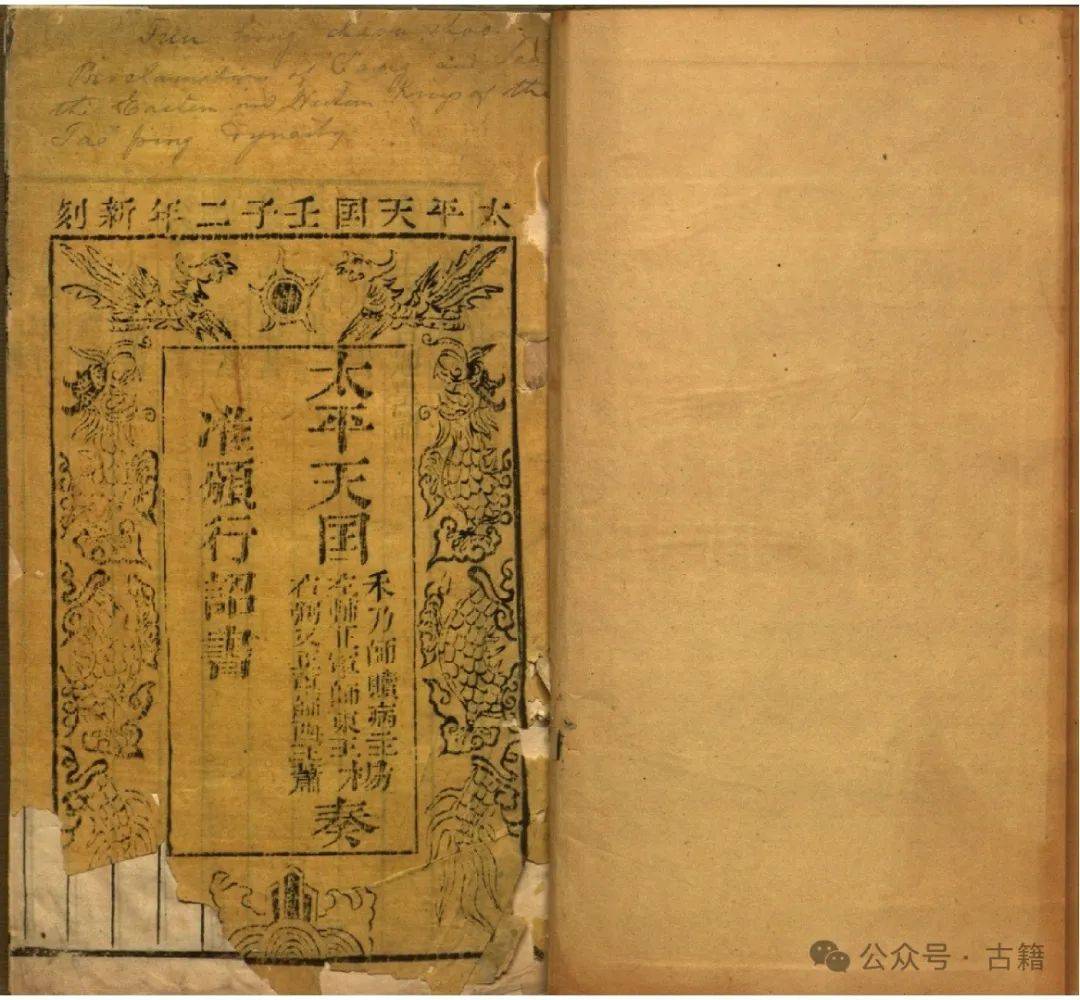 hing chaou shoo
Proclamation of and
the Eastern and Western Kings of the
Tae ping Dynasty
太平天国壬子二年新刻
太平天国
禾乃師贖病主
左輔正軍師東王楊
右弼又正軍師西王蕭
奏
准頒行詔書
公众号·古籍